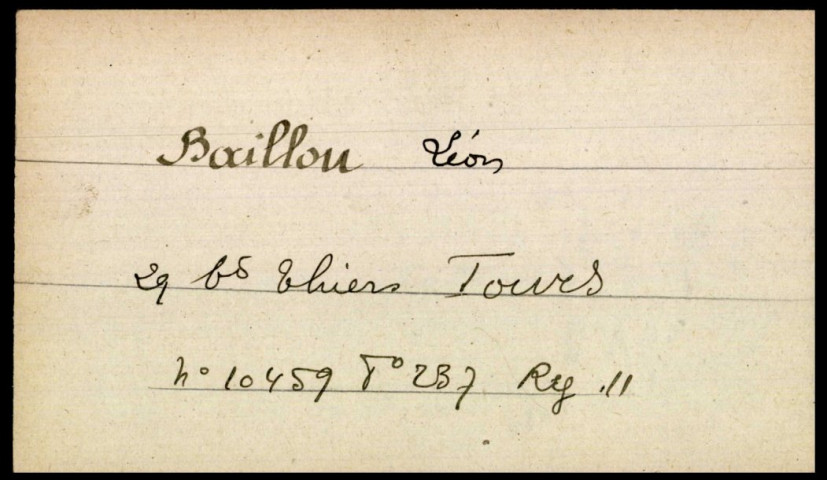 Baillou Léon
29 bd Thiers Tours
no 10459 Fo 237 Reg .11